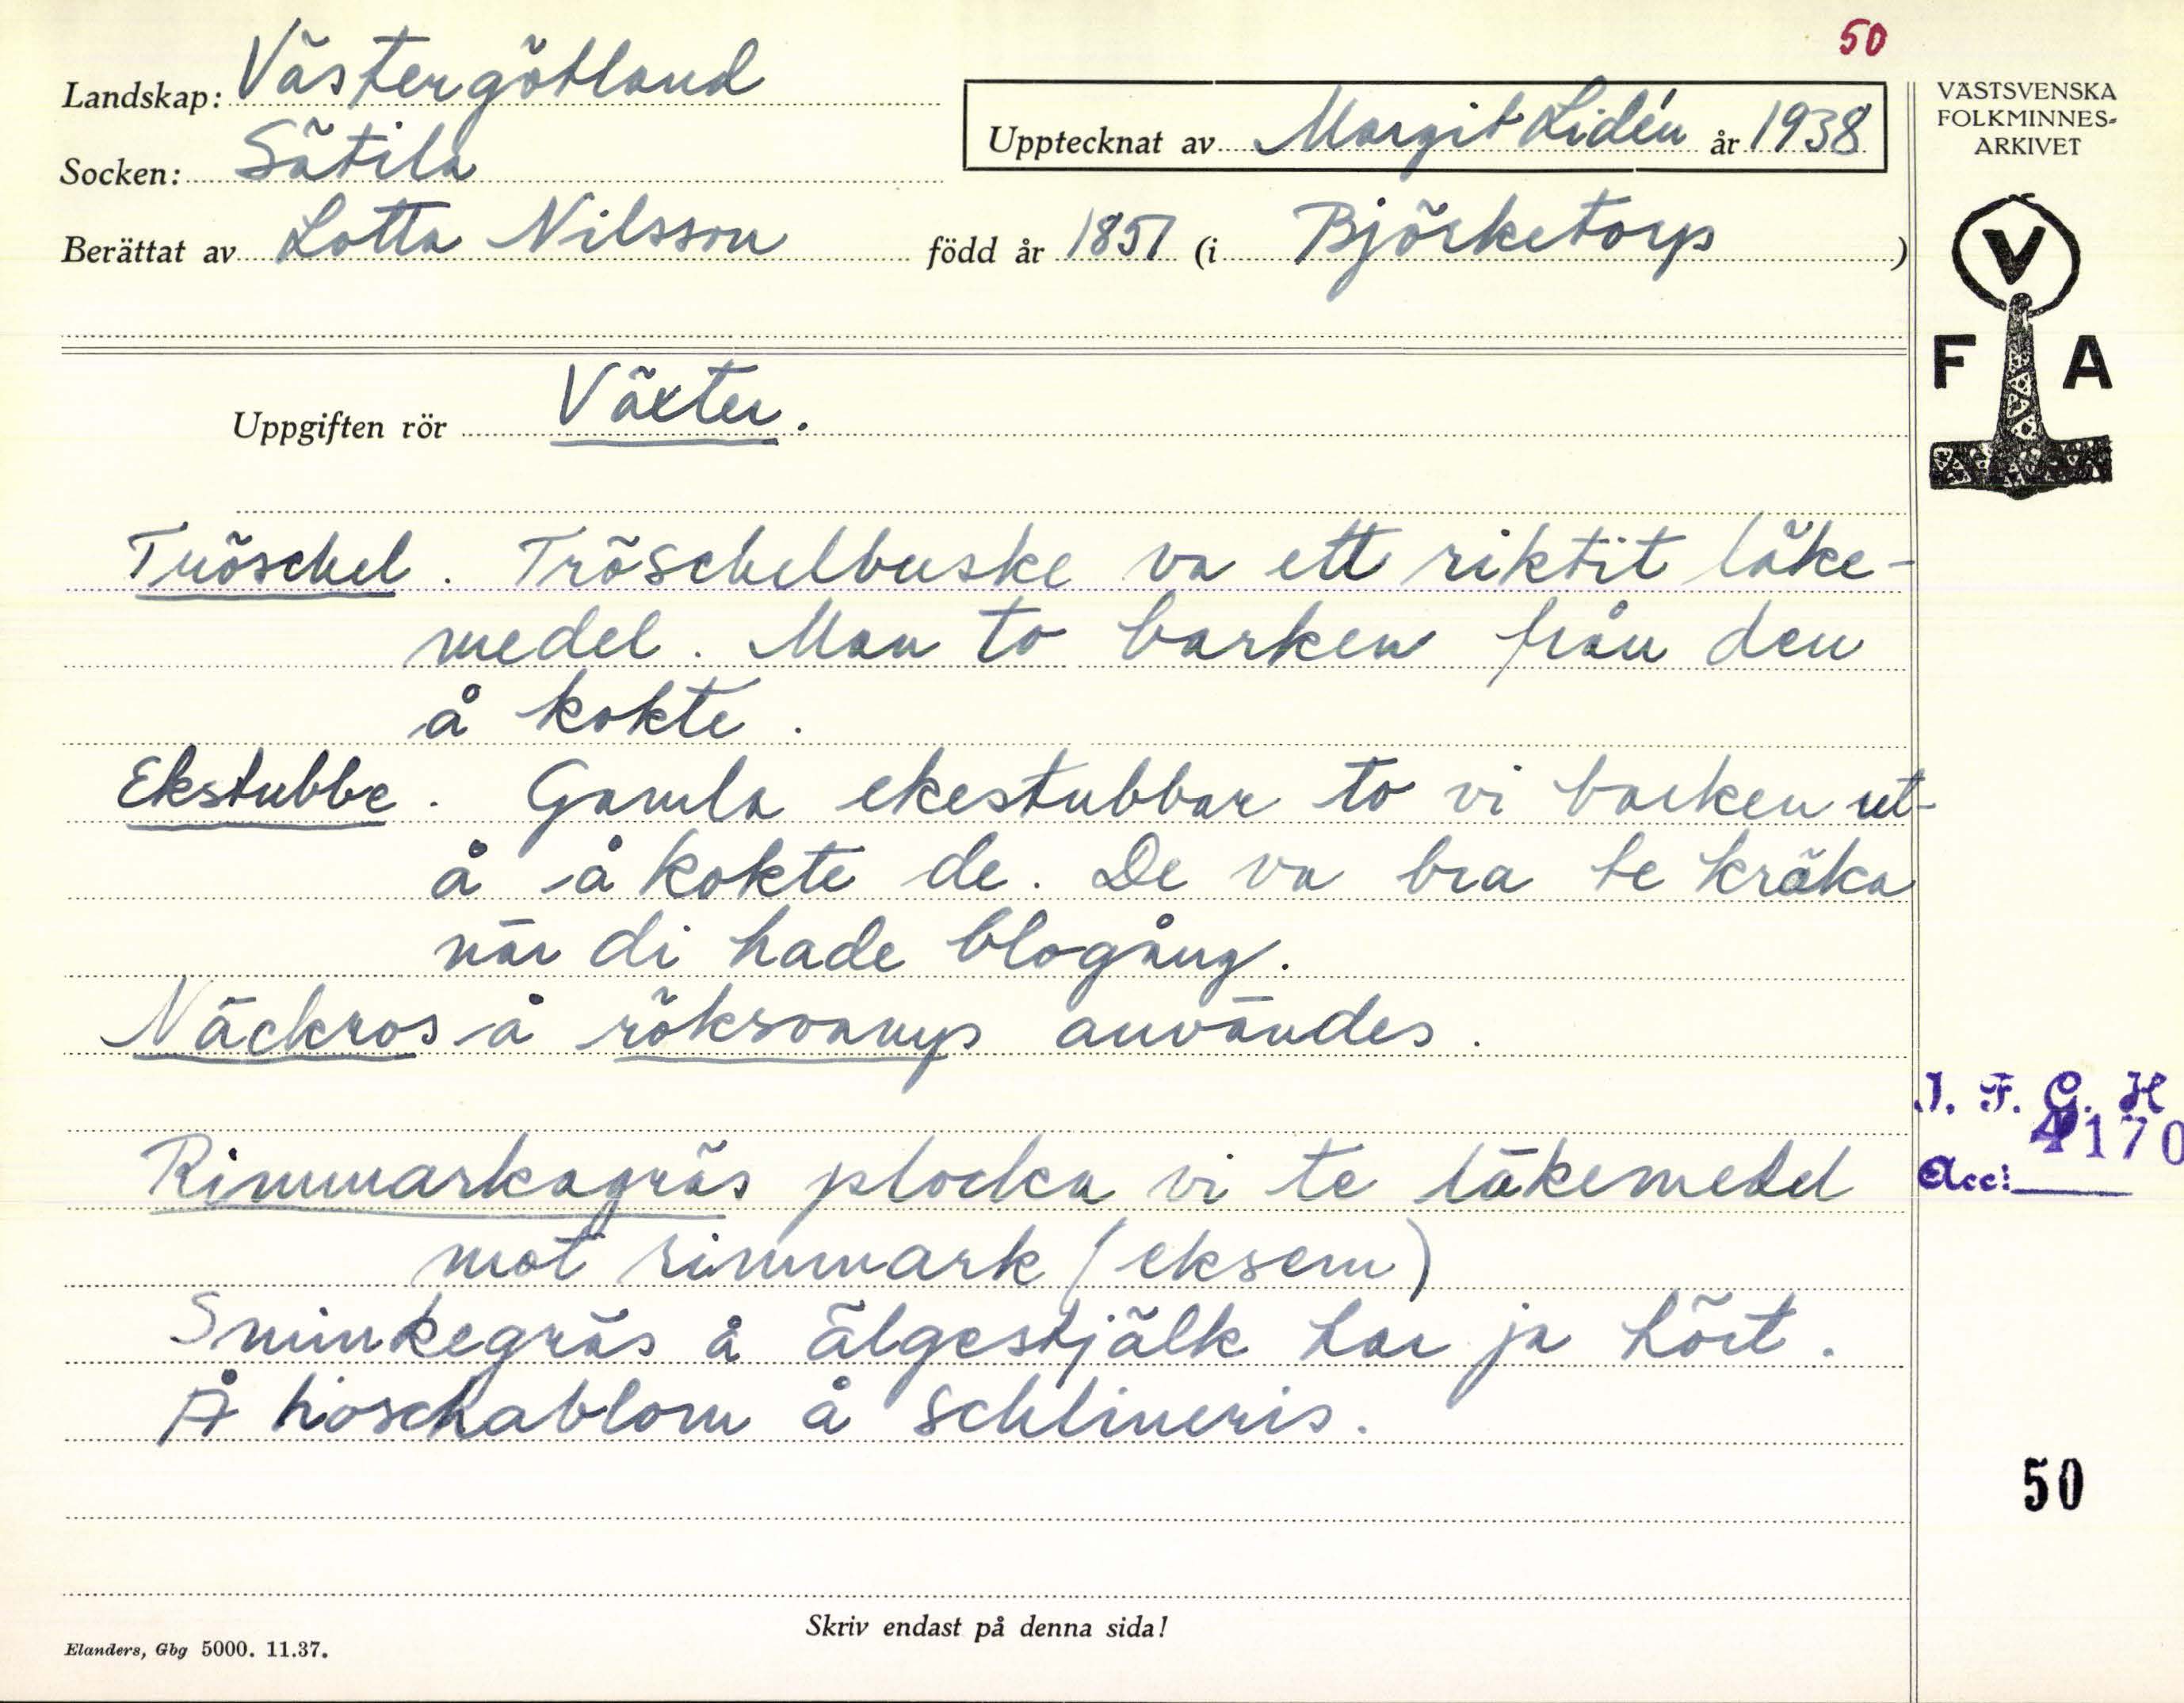 50
Landskap: Västergötland
Socken: Sätila
Upptecknat av Margit Lidén år 1938
Berättat av Lotta Nilsson född år 1851 (i Björketorp)
VÄSTSVENSKA
FOLKMINNES-
ARKIVET
V
F A
Uppgiften rör Växter.
Tröschel. Tröschelbuske va ett riktit läke-
medel. Man to barken från den
å kokte.
Ekstubbe. Gamla ekestubbar to vi barken ut-
å å kokte de. De va bra te kräka
när di hade blogång.
Näckros å röksvamp användes.
Rimmarkagräs plocka vi te läkemedel
mot rimmark (eksem)
Sminkegräs å älgestjälk har ja hört.
Å hioschablom å schlineris.
I. F. G. H
4170
Acc:
50
Skriv endast på denna sida!
Elanders, Gbg 5000. 11.37.